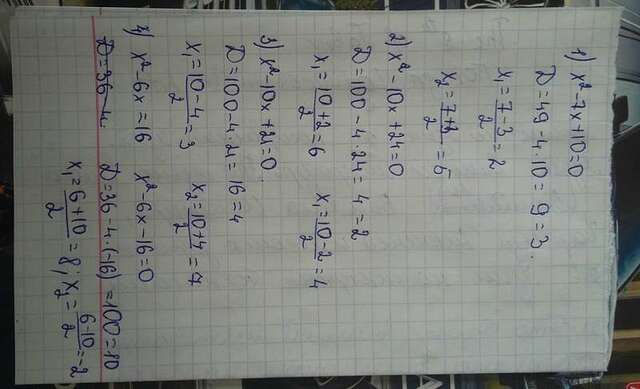 1) x²-7x+10=0
D=49-4·10=9=3.
x₁=(7-3)/2=2
x₂=(7+3)/2=5
2) x²-10x+24=0
D=100-4·24=4=2
x₁=(10+2)/2=6 x₁=(10-2)/2=4
3) x²-10x+21=0.
D=100-4·21=16=4
x₁=(10-4)/2=3 x₂=(10+4)/2=7
4) x²-6x=16 x²-6x-16=0
D=36-4. D=36-4·(-16)=100=10
x₁=(6+10)/2=8; x₂=(6-10)/2=-2